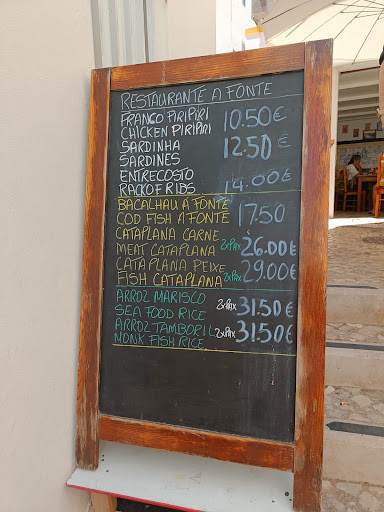 RESTAURANTE A FONTE
FRANGO PIRIPIRI 10.50€
CHICKEN PIRIPIRI
SARDINHA 12.50€
SARDINES
ENTRECOSTO 14.00€
RACK OF RIBS
BACALHAU A FONTE 17.50
COD FISH A FONTE
CATAPLANA CARNE
MEAT CATAPLANA 2xPAX 26.00€
CATAPLANA PEIXE 29.00€
FISH CATAPLANA 2xPAX
ARROZ MARISCO 2xPAX 31.50€
SEA FOOD RICE
ARROZ TAMBORIL 2xPAX 31.50€
MONK FISH RICE